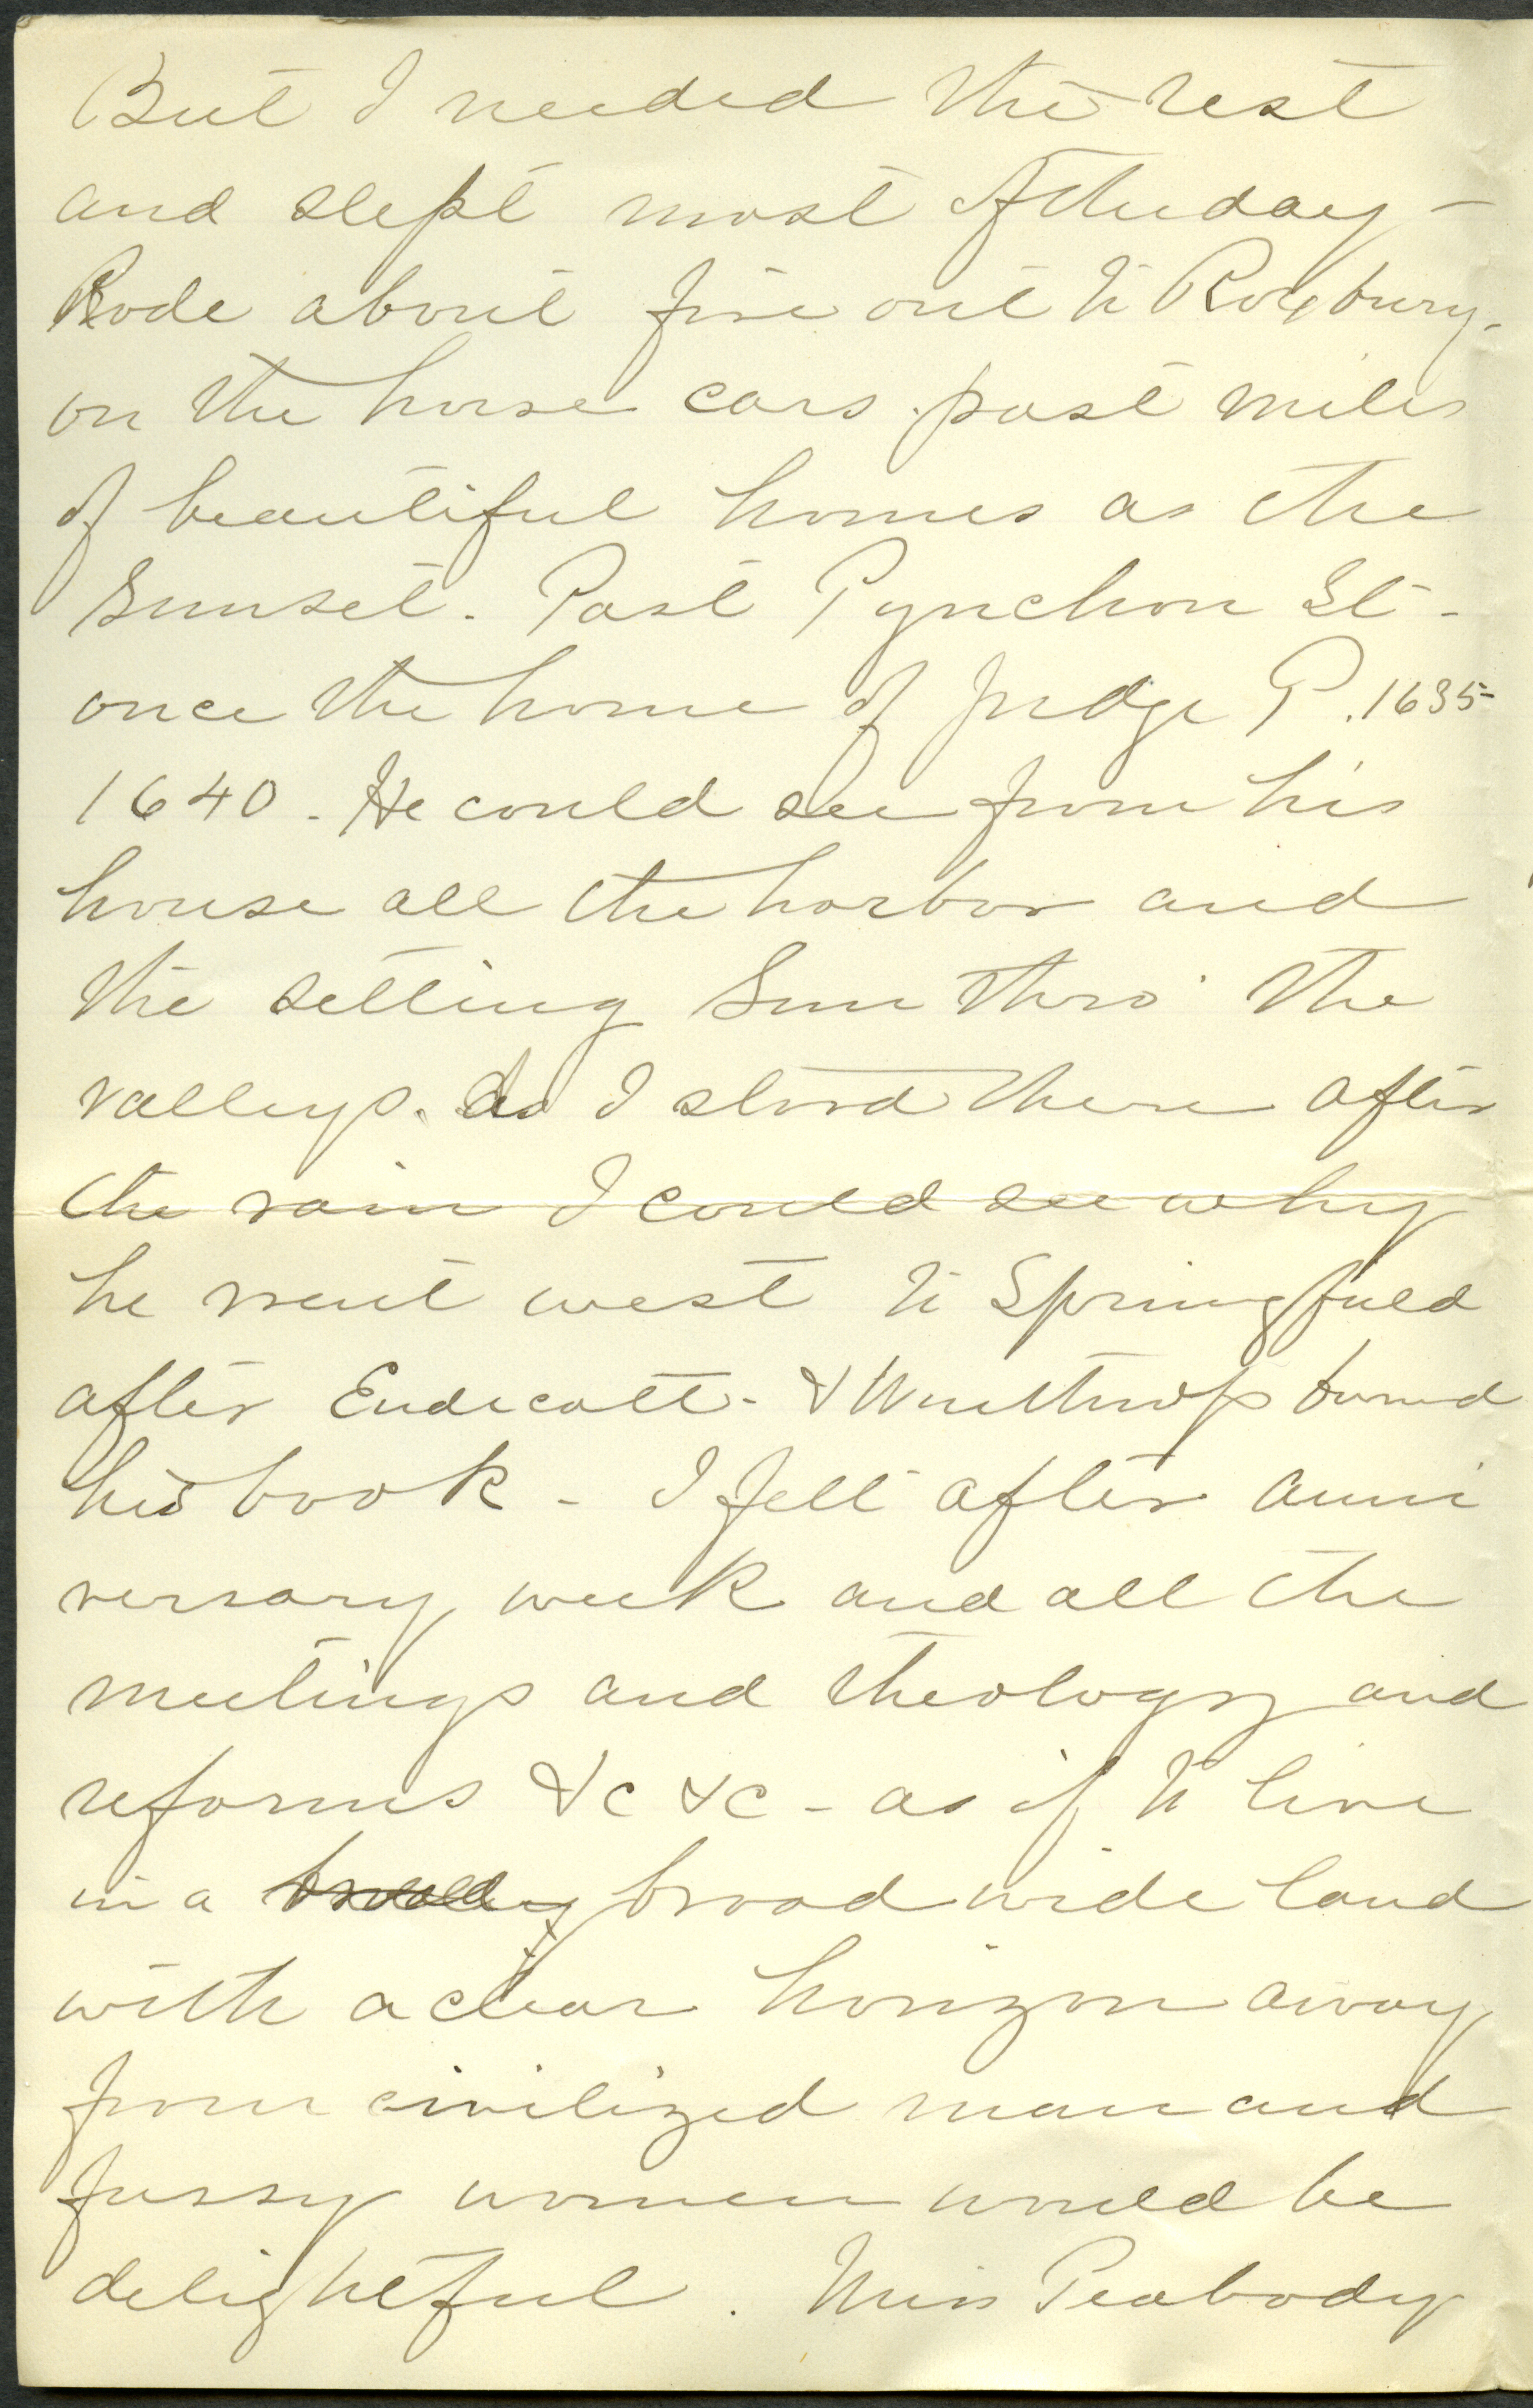 But I needed the rest
and slept most of the day –
Rode about five out to Roxbury -
on the horse cars . past miles
of beautiful homes as the
Sunset . Past Pynchon St -
once the home of Judge P . 1635 -
1640 . He could see from his
house all the harbor and
the setting Sun thro' the
valleys . As I stood there after
the rain I could see why
he went west to Springfield
after Endicott - & Winthrop burned
his book - I felt after anni
versary week and all the
meetings and theology and
reforms &c &c - as if to live
in a broad wide land
with a clear horizon away
from civilized man and
fussy women would be
delightful . Miss Peabody